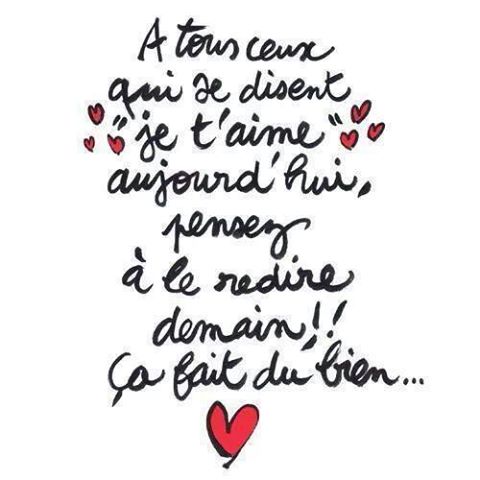 A tous ceux
qui se disent
"je t'aime"
aujourd'hui,
pensez
à le redire
demain!!
Ça fait du bien...